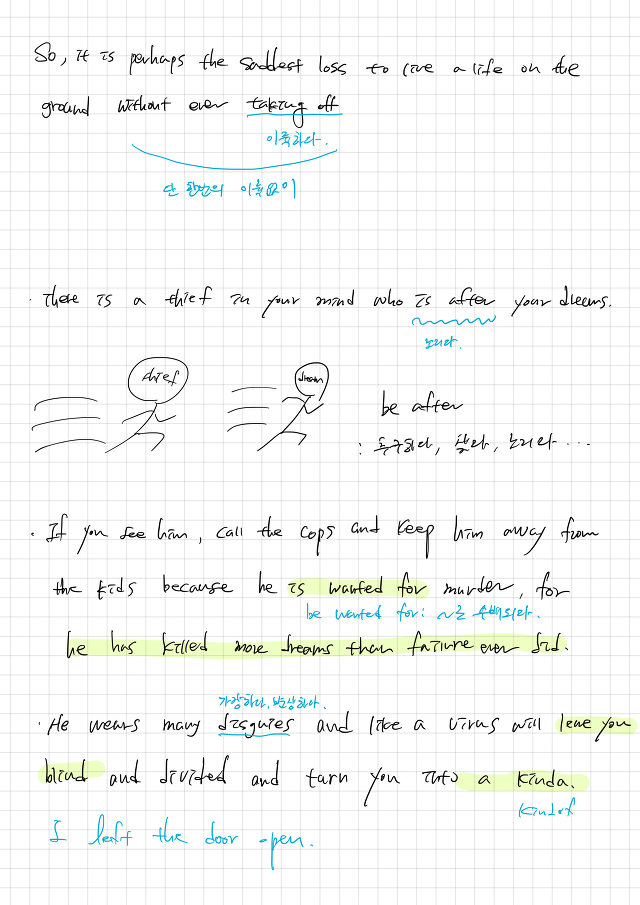 So, it is perhaps the saddest loss to live a life on the
ground without ever taking off
이륙하다.
단 한번의 이륙없이
· There is a thief in your mind who is after your dreams.
노리다.
thief
dream
be after
: 추구하다, 찾다, 노리다 ...
· If you see him, call the cops and keep him away from
the kids because he is wanted for murder, for
be wanted for: ~로 수배되다.
he has killed more dreams than failure ever did.
가장하다, 변상하다.
· He wears many disguies and like a virus will leave you
blind and divided and turn you into a kinda.
kind of
I left the door open.